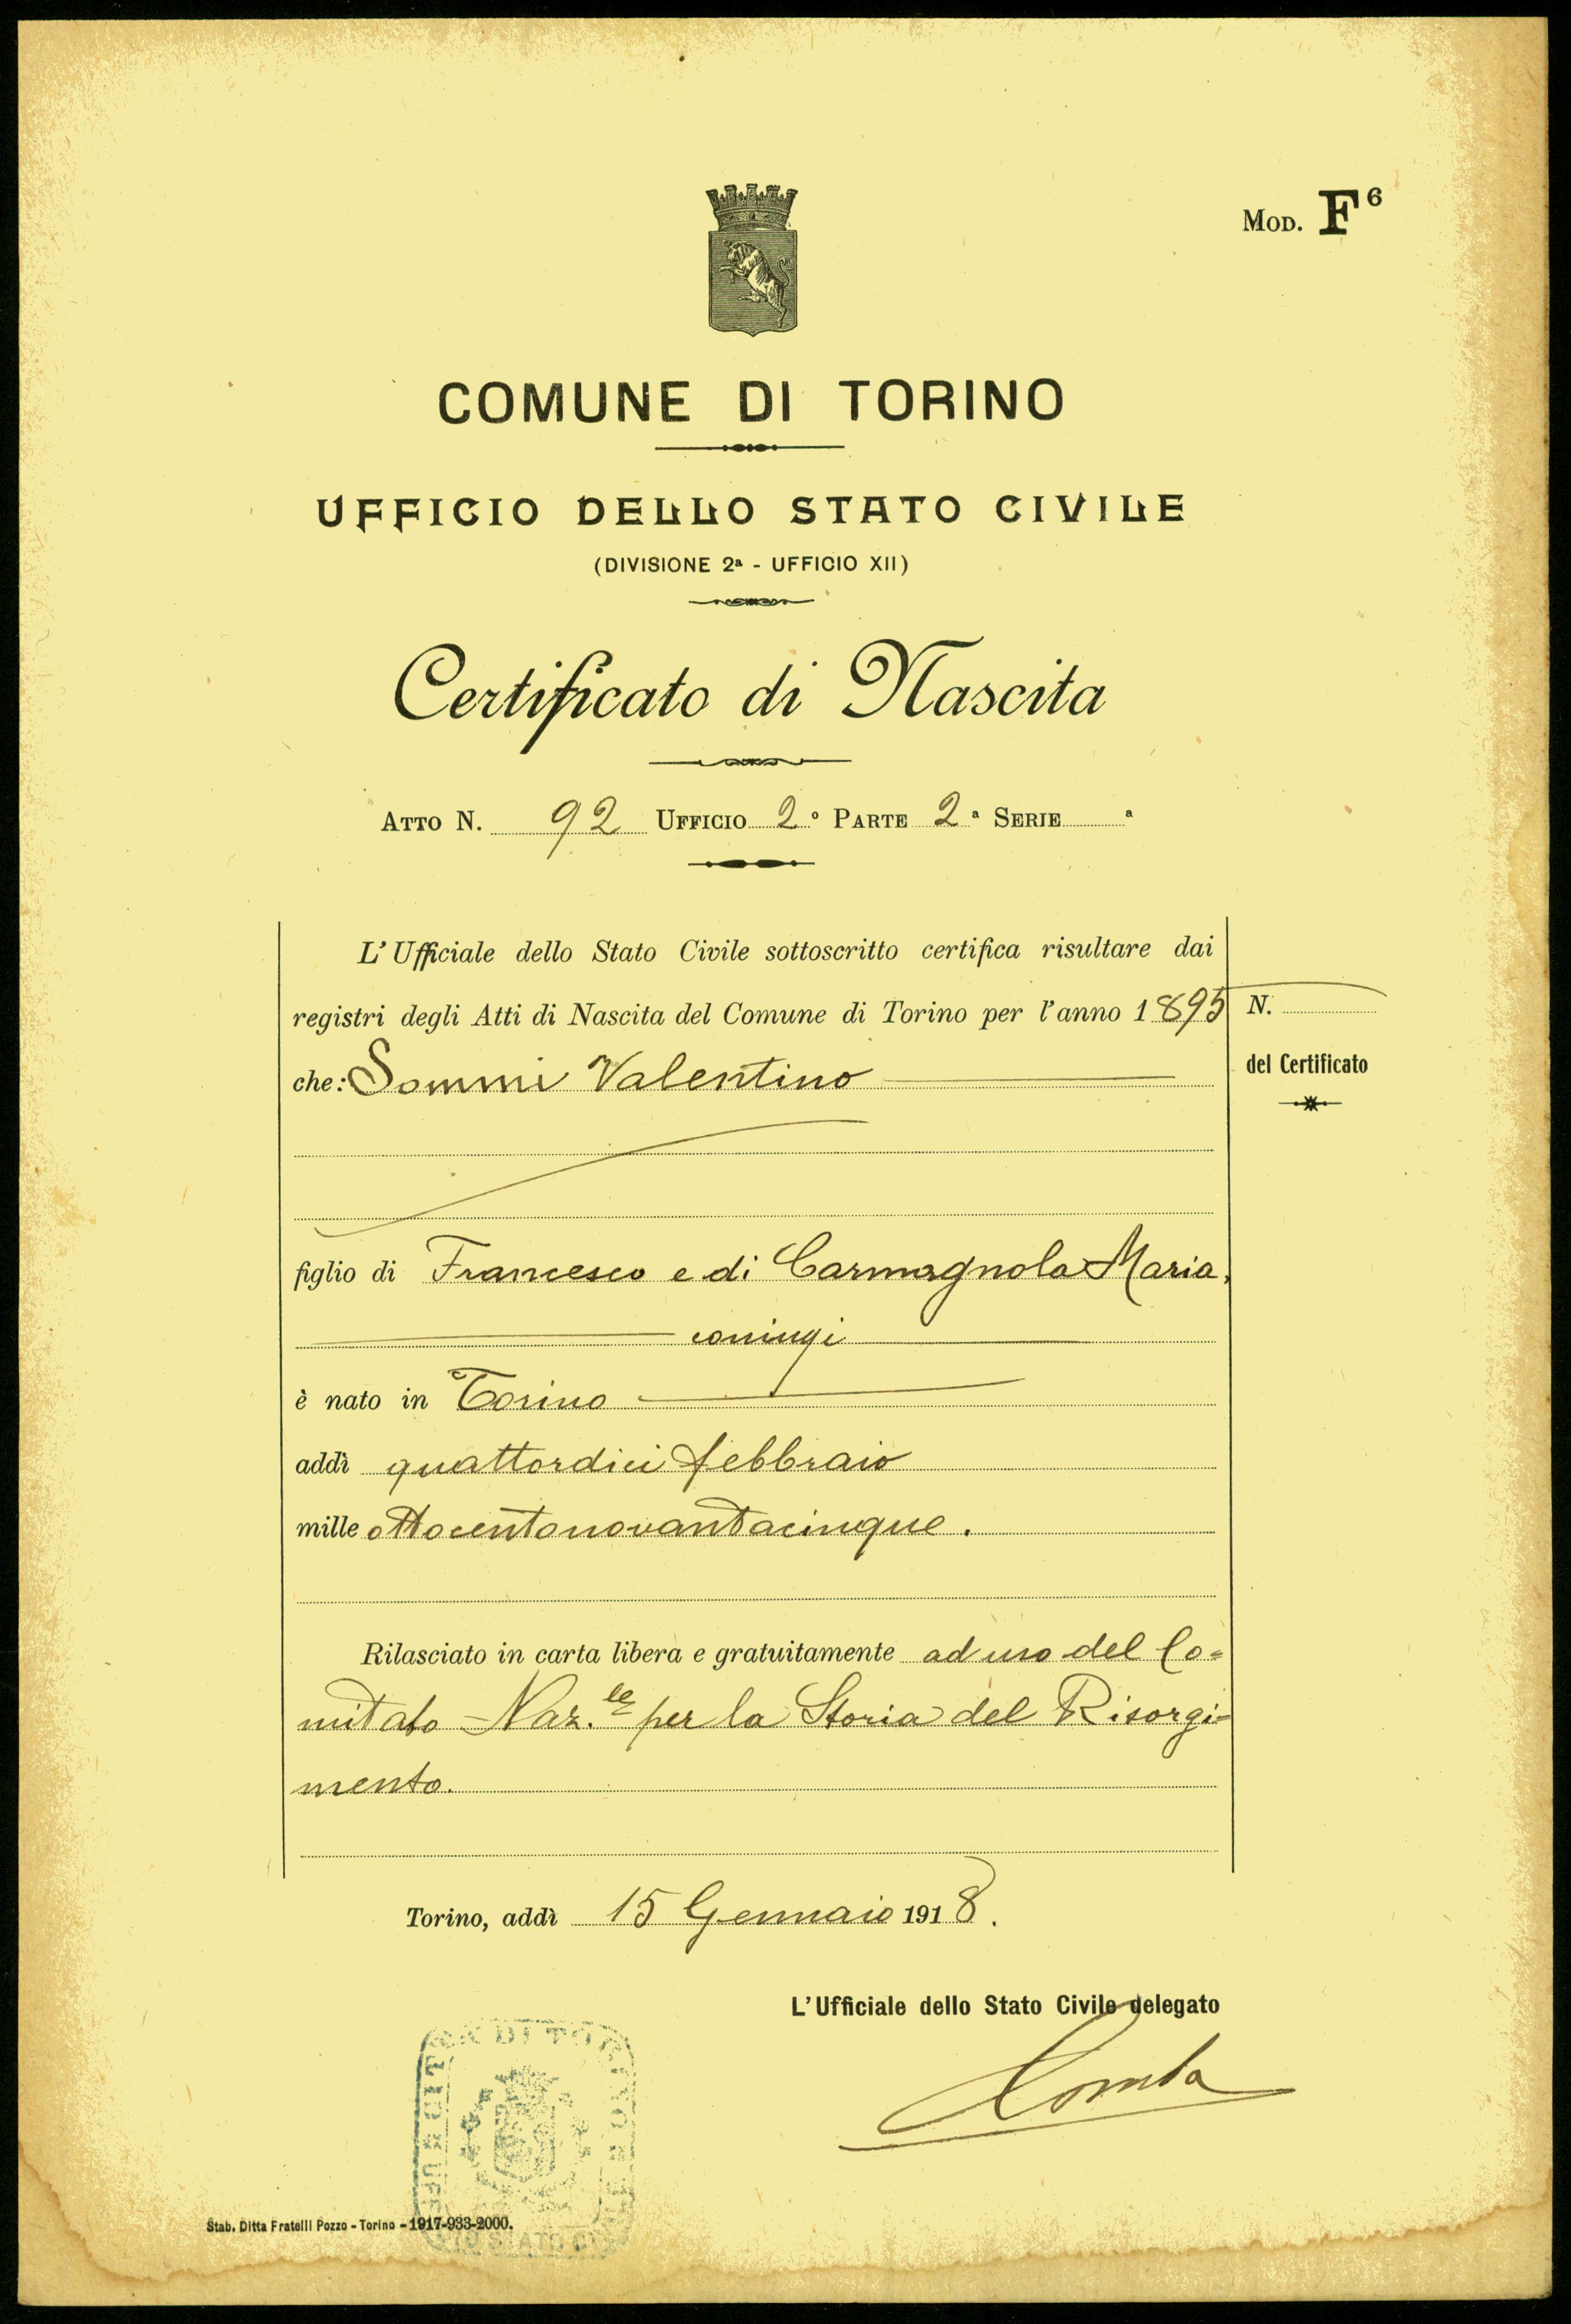 Mod. F⁶
COMUNE DI TORINO
UFFICIO DELLO STATO CIVILE
(DIVISIONE 2ª - UFFICIO XII)
Certificato di Nascita
Atto N. 92 Ufficio 2º Parte 2ª Serie ª
L'Ufficiale dello Stato Civile sottoscritto certifica risultare dai
registri degli Atti di Nascita del Comune di Torino per l'anno 1895
N.
che: Sommi Valentino
del Certificato
figlio di Francesco e di Carmagnola Maria,
coniugi
è nato in Torino
addì quattordici febbraio
mille ottocentonovantacinque.
Rilasciato in carta libera e gratuitamente ad uso del Co=
mitato Naz.le per la Storia del Risorgi=
mento.
Torino, addì 15 Gennaio 1918.
L'Ufficiale dello Stato Civile delegato
CITTÀ DI TORINO
UFFICIO STATO CIVILE
Stab. Ditta Fratelli Pozzo - Torino - 1917-933-2000.